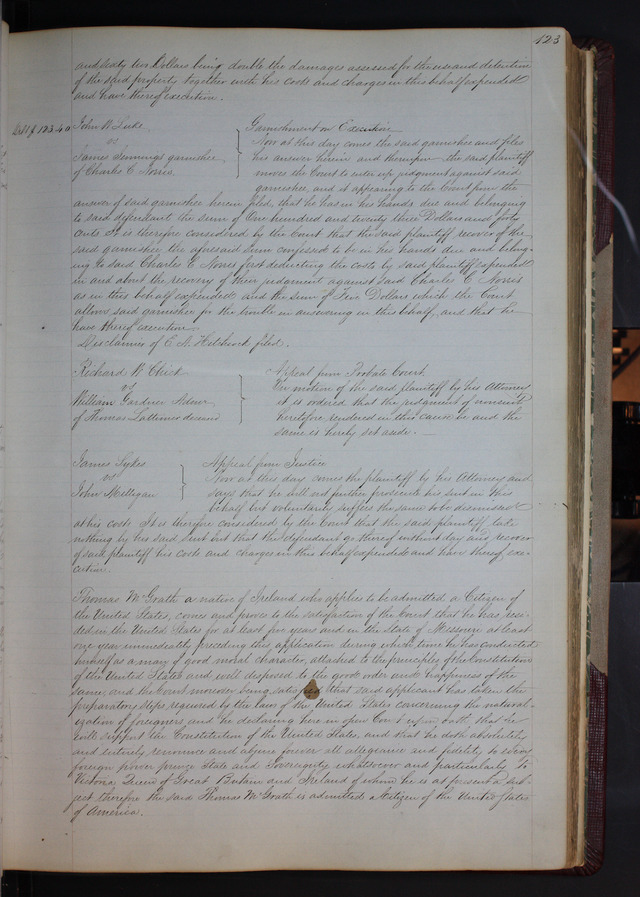 423
and sixty two Dollars being double the damages assessed for the use and detention
of the said property together with his costs and charges in this behalf expended
and have thereof execution.
John W Lude Garnishment on Execution
vs Now at this day comes the said garnishee and files
James Jennings garnishee his answer herein and thereupon the said plaintiff
of Charles C Norris moves the Court to enter up judgment against said
garnishee, and it appearing to the Court from the
answer of said garnishee herein filed, that he has in his hands due and belonging
to said defendant the sum of One hundred and twenty three Dollars and forty
cents It is therefore considered by the Court that the said plaintiff recover of the
said garnishee the aforesaid sum confessed to be in his hands due and belong-
ing to said Charles C Norris first deducting the costs by said plaintiff expended
in and about the recovery of their judgment against said Charles C Norris
as in this behalf expended and the sum of Five Dollars which the Court
allows said garnishee for his trouble in answering in this behalf, and that he
have thereof execution.
Disclaimer of E. N. Hitchcock filed.
Richard W. Chick Appeal from Probate Court
vs On motion of the said plaintiff by his Attorney
William Gardner Admr it is ordered that the judgment of nonsuit
of Thomas Lattimer deceased heretofore rendered in this cause be and the
same is hereby set aside.
James Sykes Appeal from Justice
vs Now at this day comes the plaintiff by his Attorney and
John Milligan says that he will not further prosecute his suit in this
behalf but voluntarily suffers the same to be dismissed
at his costs. It is therefore considered by the Court that the said plaintiff take
nothing by his said suit but that the defendant go thereof without day and recover
of said plaintiff his costs and charges in this behalf expended and have thereof exe-
cution.
Thomas McGrath a native of Ireland who applies to be admitted a Citizen of
the United States, comes and proves to the satisfaction of the Court that he has resi-
ded in the United States for at least five years and in the State of Missouri at least
one year immediately preceding this application during which time he has conducted
himself as a man of good moral character, attached to the principles of the Constitution
of the United States and well disposed to the good order and happiness of the
same, and the Court moreover being satisfied that said applicant has taken the
preparatory steps required by the laws of the United States concerning the natural-
ization of foreigners and he declaring here in open Court upon oath that he
will support the Constitution of the United States, and that he doth absolutely
and entirely renounce and abjure forever all allegiance and fidelity to every
foreign power prince State and Sovereignty whatsoever and particularly to
Victoria Queen of Great Britain and Ireland of whom he is at present a sub-
ject therefore the said Thomas McGrath is admitted a Citizen of the United States
of America.